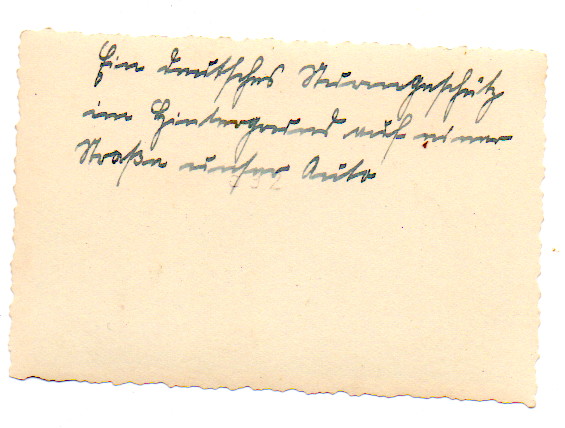 Ein deutsches Sturmgeschütz
im Hintergrund auf einer
Straße unser Auto